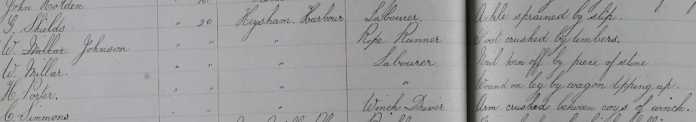 John Holden
G. Shields " 20 Heysham Harbour Labourer. Ankle sprained by slip.
W. Millar Johnson " " " Rope Runner Foot crushed by timbers.
W. Millar. " " " Labourer. Nail torn off by piece of stone
H. Porter. " " " " Wound on leg by wagon tipping up.
C. Simmons " " " Winch Driver Arm crushed between cogs of winch.